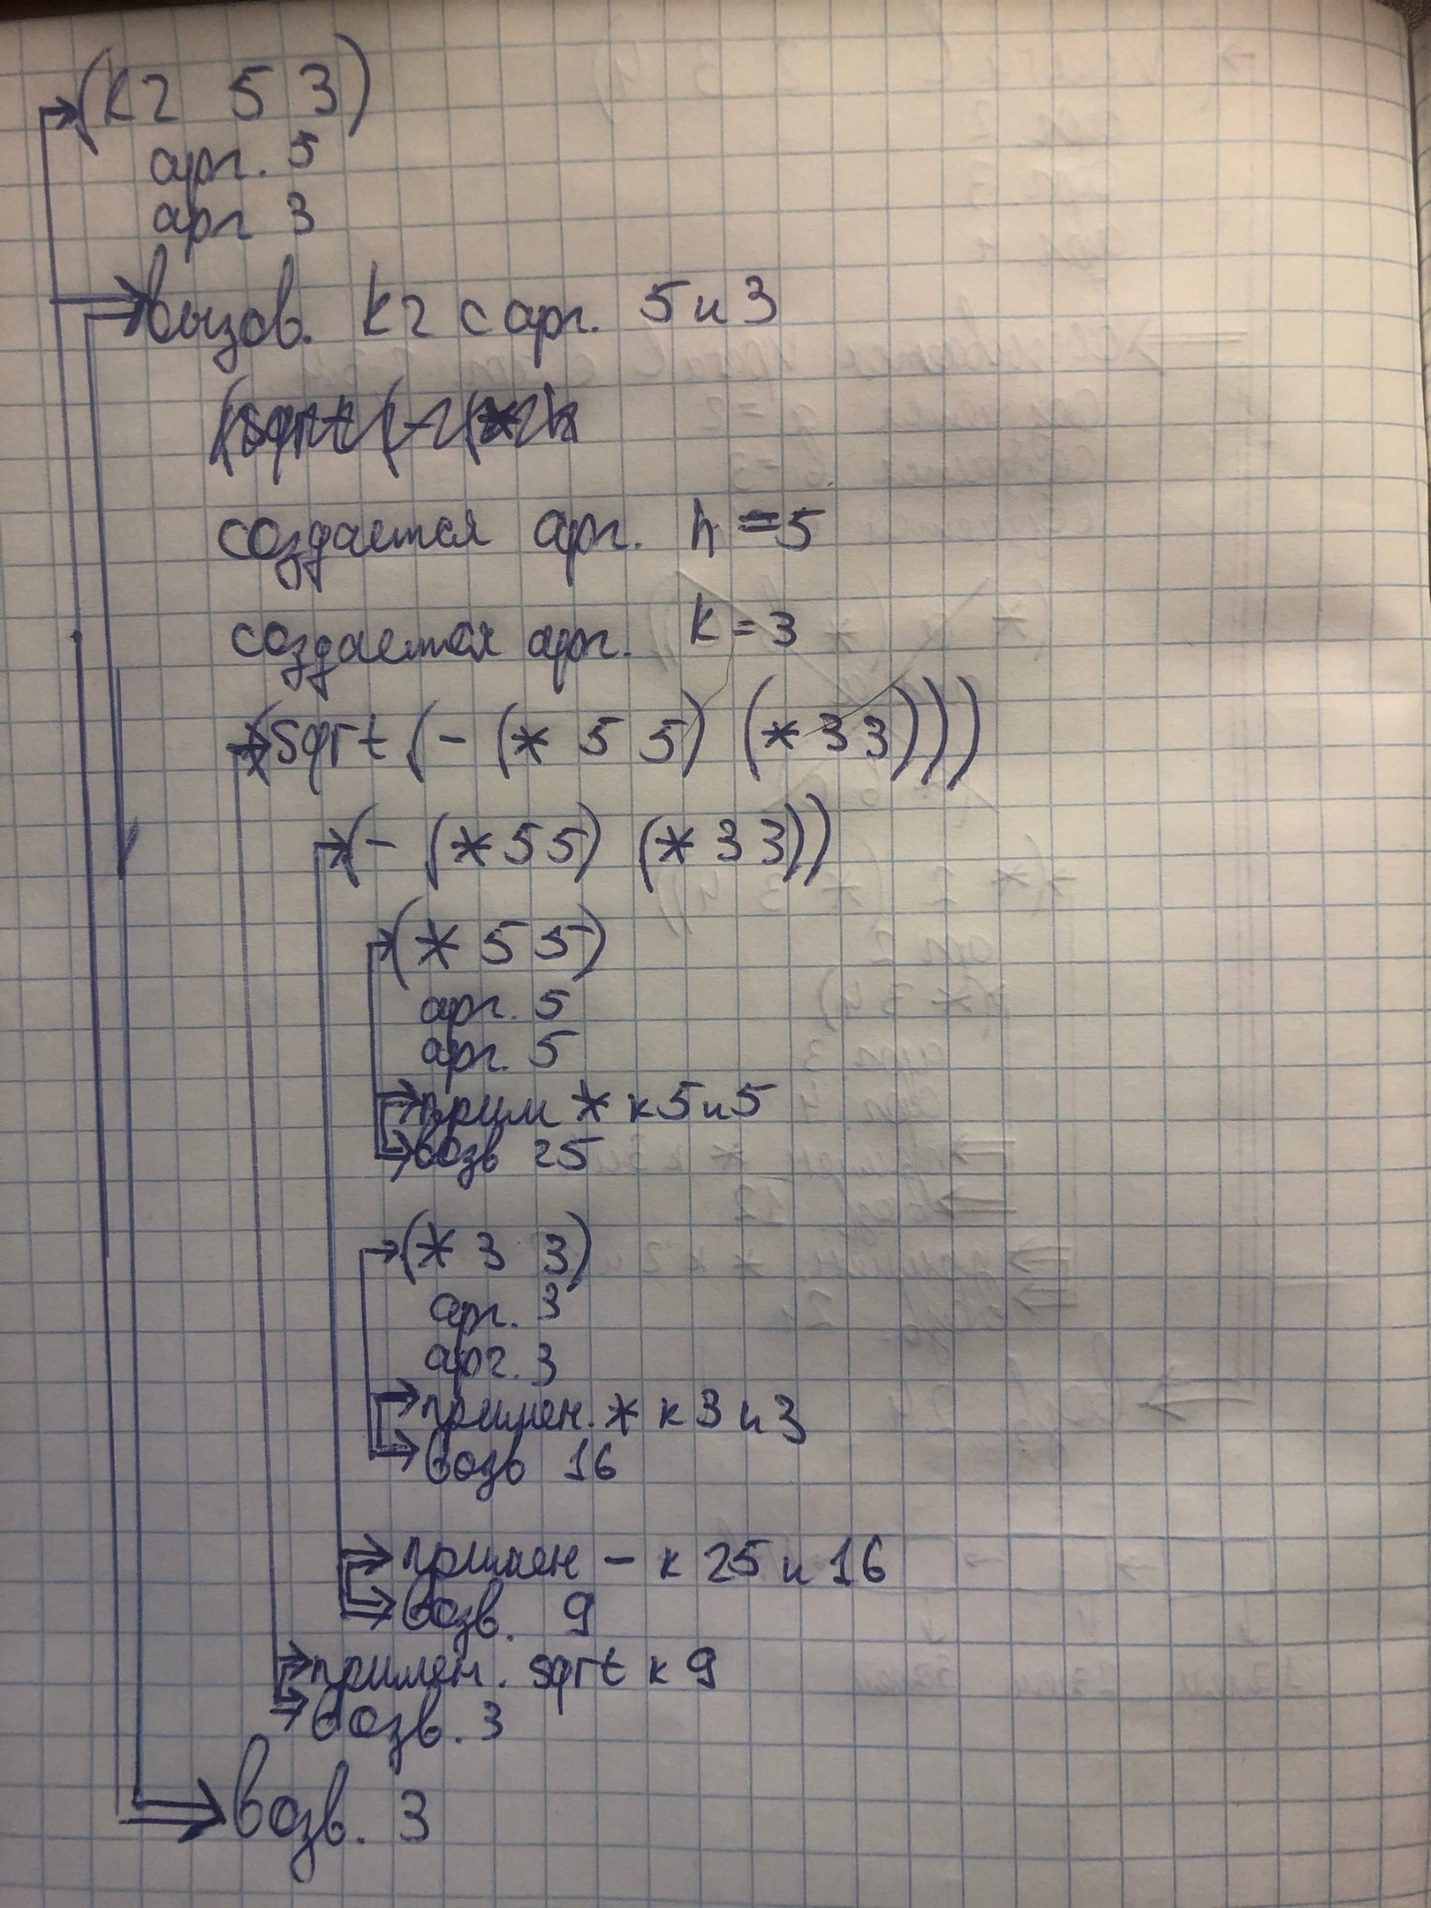 (k2 5 3)
арг. 5
арг 3
вызов. k2 с арг. 5 и 3
создается арг. h = 5
создается арг. k = 3
(sqrt (- (* 5 5) (* 3 3)))
(- (* 5 5) (* 3 3))
(* 5 5)
арг. 5
арг. 5
прим * к 5 и 5
возв 25
(* 3 3)
арг. 3
арг. 3
примен. * к 3 и 3
возв 16
примен - к 25 и 16
возв. 9
примен. sqrt к 9
возв. 3
возв. 3